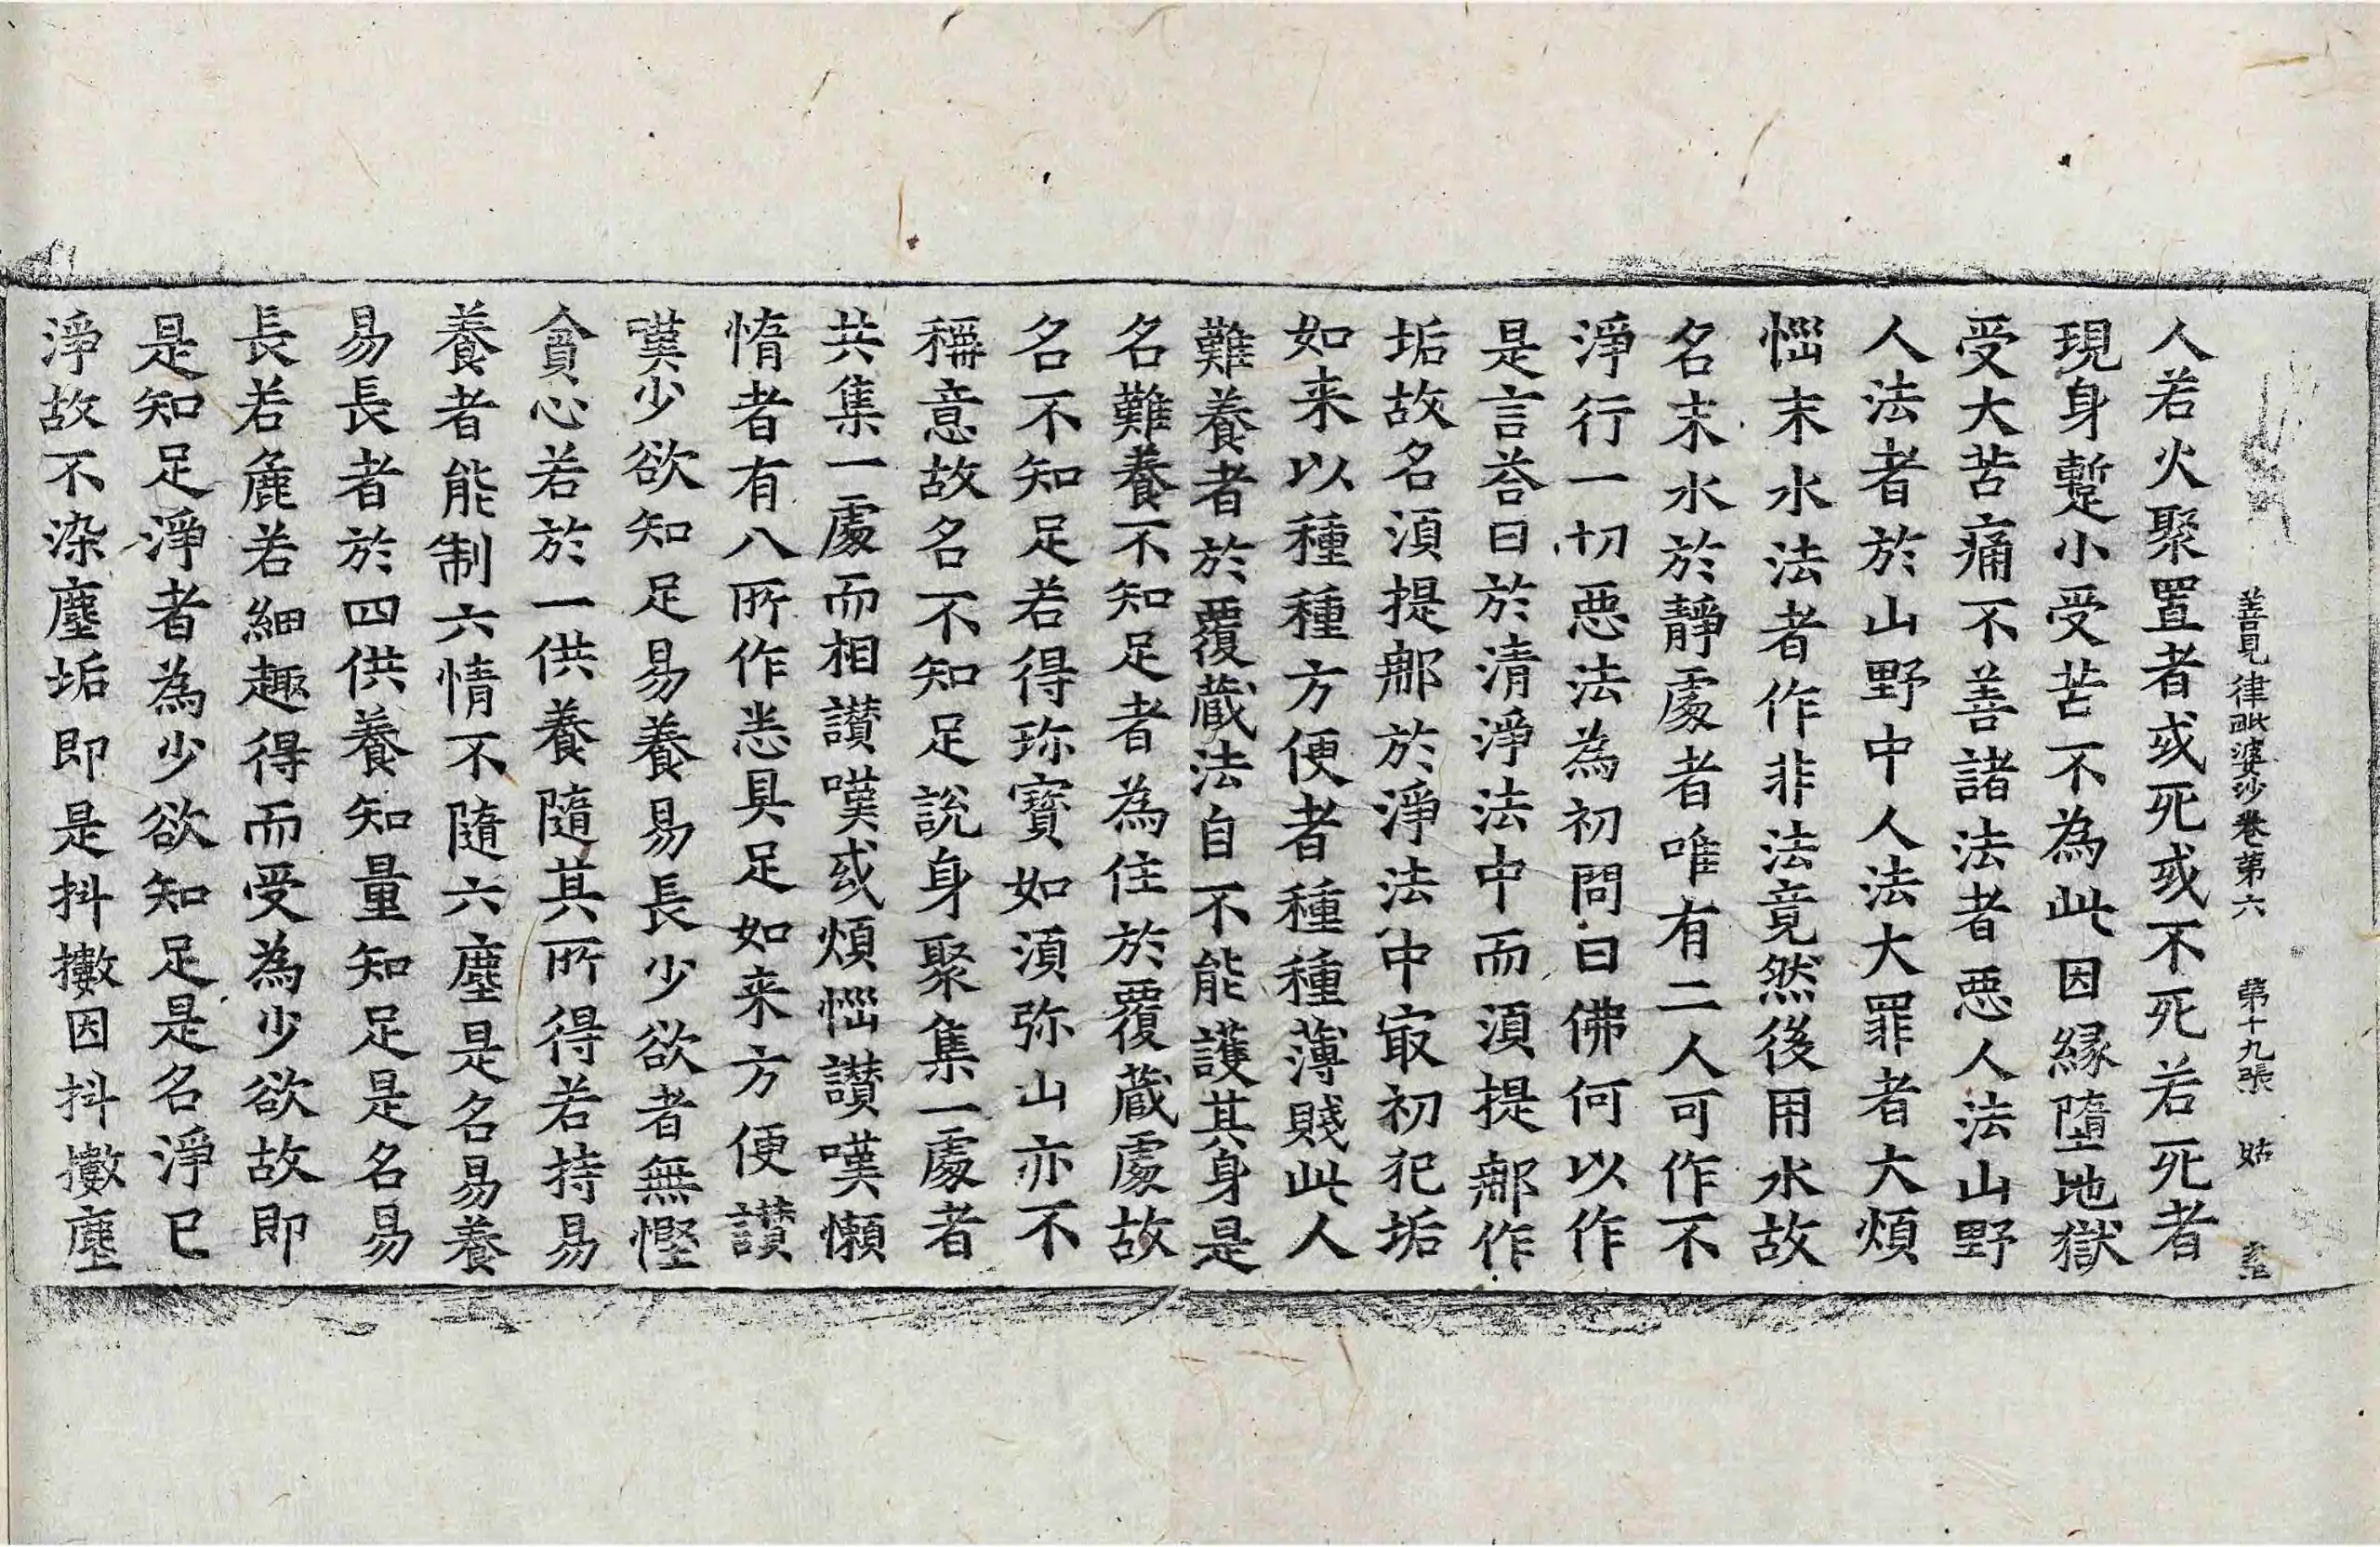 善見律毗婆沙卷第六　第十九張　姑
人若火聚置者或死或不死若死者
現身蹔小受苦不為此因緣墮地獄
受大苦痛不善諸法者惡人法山野
人法者於山野中人法大罪者大煩
惱末水法者作非法竟然後用水故
名末水於靜處者唯有二人可作不
淨行一切惡法為初問曰佛何以作
是言荅曰於清淨法中而湏提那作
垢故名湏提那於淨法中冣初犯垢
如来以種種方便者種種薄賤此人
難養者於覆蔵法自不能護其身是
名難養不知足者為住於覆蔵處故
名不知足若得珎寶如湏弥山亦不
稱意故名不知足說身聚集一處者
共集一處而相讃嘆或煩惱讃嘆懶
惰者有八所作悉具足如来方便讃
嘆少欲知足易養易長少欲者無慳
貪心若於一供養隨其所得若持易
養者能制六情不隨六塵是名易養
易長者於四供養知量知足是名易
長若麁若細趣得而受為少欲故即
是知足淨者為少欲知足是名淨已
淨故不染塵垢即是抖擻因抖擻塵